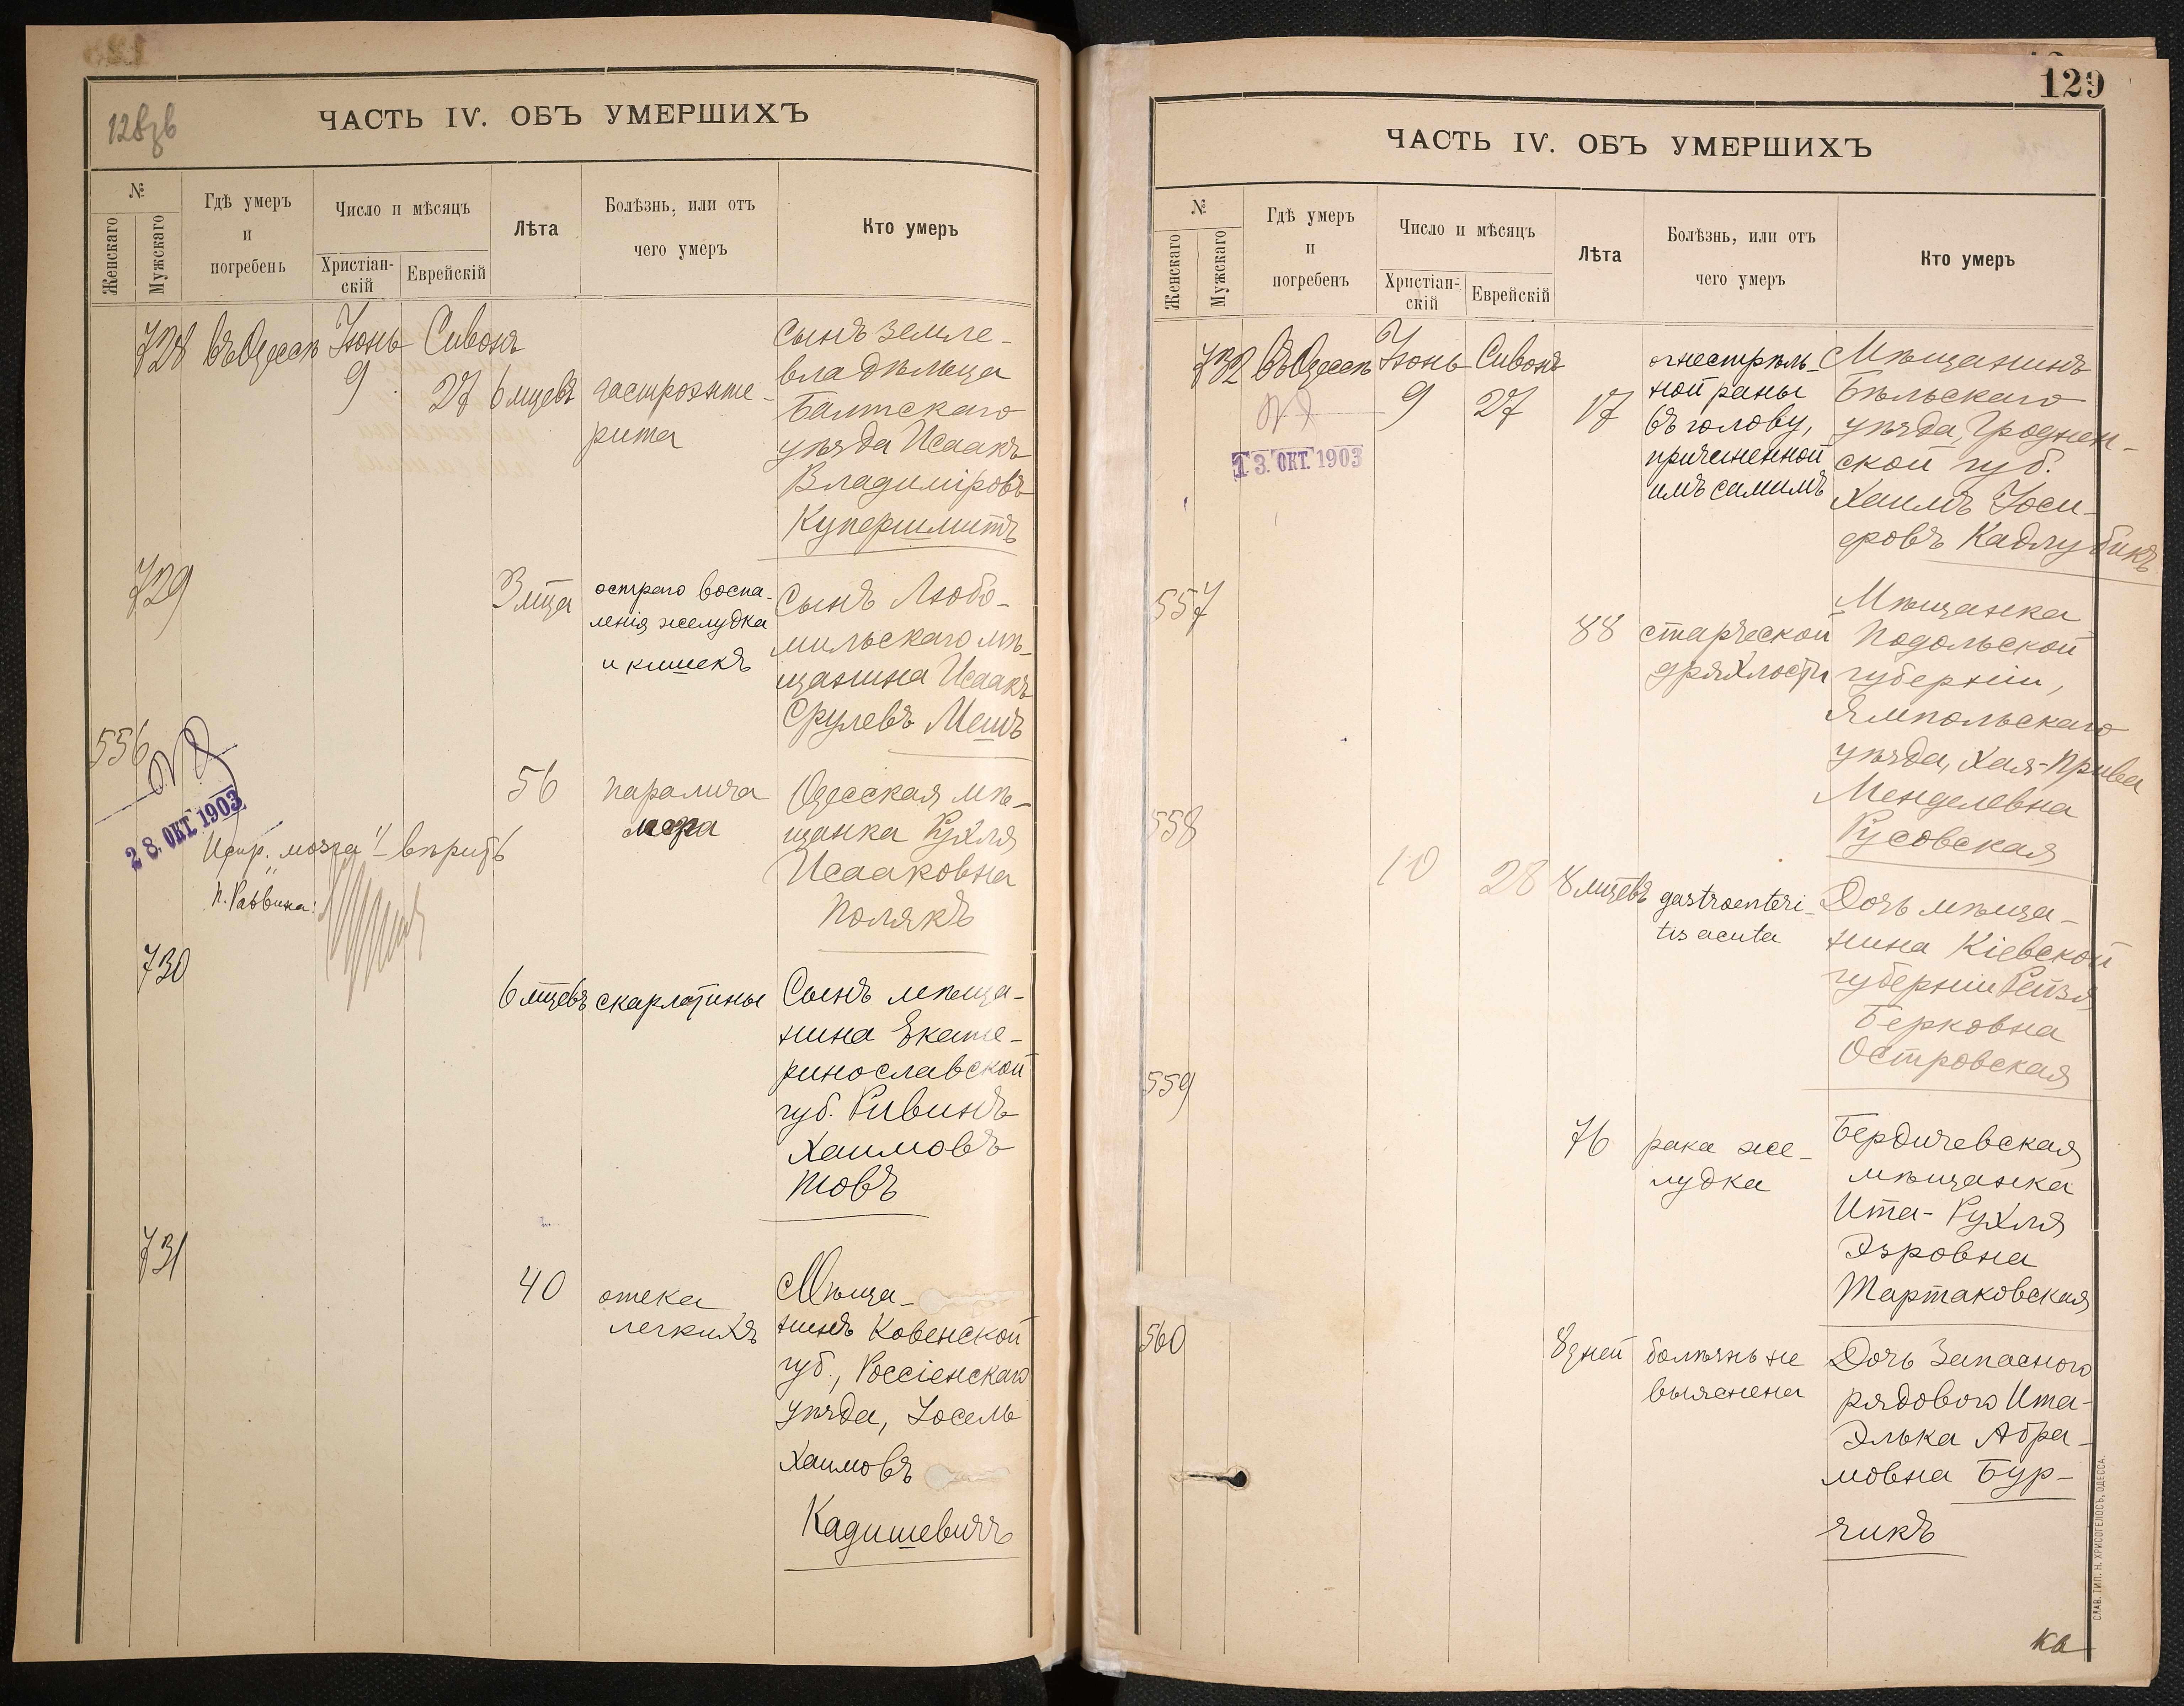 128об
ЧАСТЬ IV. ОБЪ УМЕРШИХЪ
№
Женскаго
Мужскаго
Гдѣ умеръ
и
погребенъ
Число и мѣсяцъ
Христіан-
скій
Еврейскій
Лѣта
Болѣзнь, или отъ
чего умеръ
Кто умеръ
728 Въ Одессѣ Іюнь Сивонъ
9 27 6 мцевъ гастроэнте-
рита
Сынъ земле-
владѣльца
Балтскаго
уѣзда Исаакъ
Владиміровъ
Купершмитъ
729
3 мца остраго воспа-
ленія желудка
и кишекъ
Сынъ Любо-
мильскаго мѣ-
щанина Исаакъ
Срулевъ Мешъ
556
28. ОКТ. 1903
56 паралича
Одесская мѣ-
щанка Рухля
Исааковна
Полякъ
Испр. „мозга“ – вѣрить
П. Раввина:
730
6 мцевъ скарлатины
Сынъ мѣща-
нина Екате-
ринославской
губ. Ривинъ
Хаимовъ
Товъ
731
40 отека
легкихъ
Мѣща-
нинъ Ковенской
губ., Россіенскаго
уѣзда, Іосель
Хаимовъ
Кадишевичъ
129
ЧАСТЬ IV. ОБЪ УМЕРШИХЪ
№
Женскаго
Мужскаго
Гдѣ умеръ
и
погребенъ
Число и мѣсяцъ
Христіан-
скій
Еврейскій
Лѣта
Болѣзнь, или отъ
чего умеръ
Кто умеръ
732 Въ Одессѣ Іюнь Сивонъ
9 27 17
13. ОКТ. 1903
огнестрѣль-
ной раны
въ голову,
причиненной
имъ самимъ
Мѣщанинъ
Бѣльскаго
уѣзда, Гроднен-
ской губ.
Хаимъ Іоси-
фовъ Кадлубикъ
557
88 старческой
дряхлости
Мѣщанка
Подольской
губерніи,
Ямпольскаго
уѣзда, Хая-Прива
Менделевна
Русовская
558
10 28 8 мцевъ gastroenteri-
tis acuta
Дочь мѣща-
нина Кіевской
губерніи Рейзя
Берковна
Островская
559
76 рака же-
лудка
Бердичевская
мѣщанка
Ита-Рухля
Эзровна
Тартаковская
560
8 дней болѣзнь не
выяснена
Дочь запасного
рядового Ита-
Элька Абра-
мовна Бур-
чикъ
СЛАВ. ТИП. Н. ХРИСОГЕЛОСЪ, ОДЕССА.